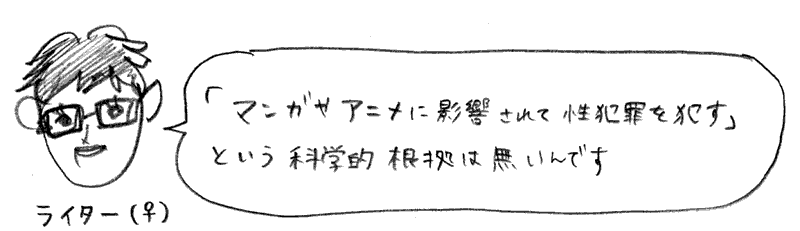 「マンガやアニメに影響されて性犯罪を犯す」
という科学的根拠は無いんです
ライター(♀)